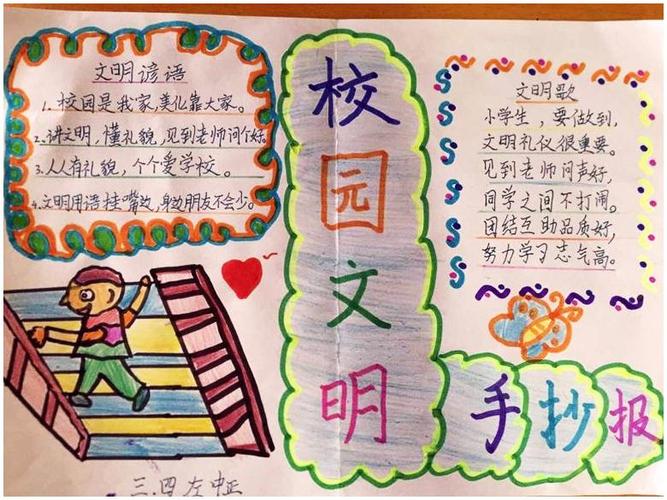 文明谚语
1. 校园是我家,美化靠大家。
2. 讲文明,懂礼貌,见到老师问个好。
3. 人人有礼貌,个个爱学校。
4. 文明用语挂嘴边,身边朋友不会少。
校园文明
手抄报
文明歌
小学生,要做到,
文明礼仪很重要。
见到老师问声好,
同学之间不打闹。
团结互助品质好,
努力学习志气高。
三.四 左中正